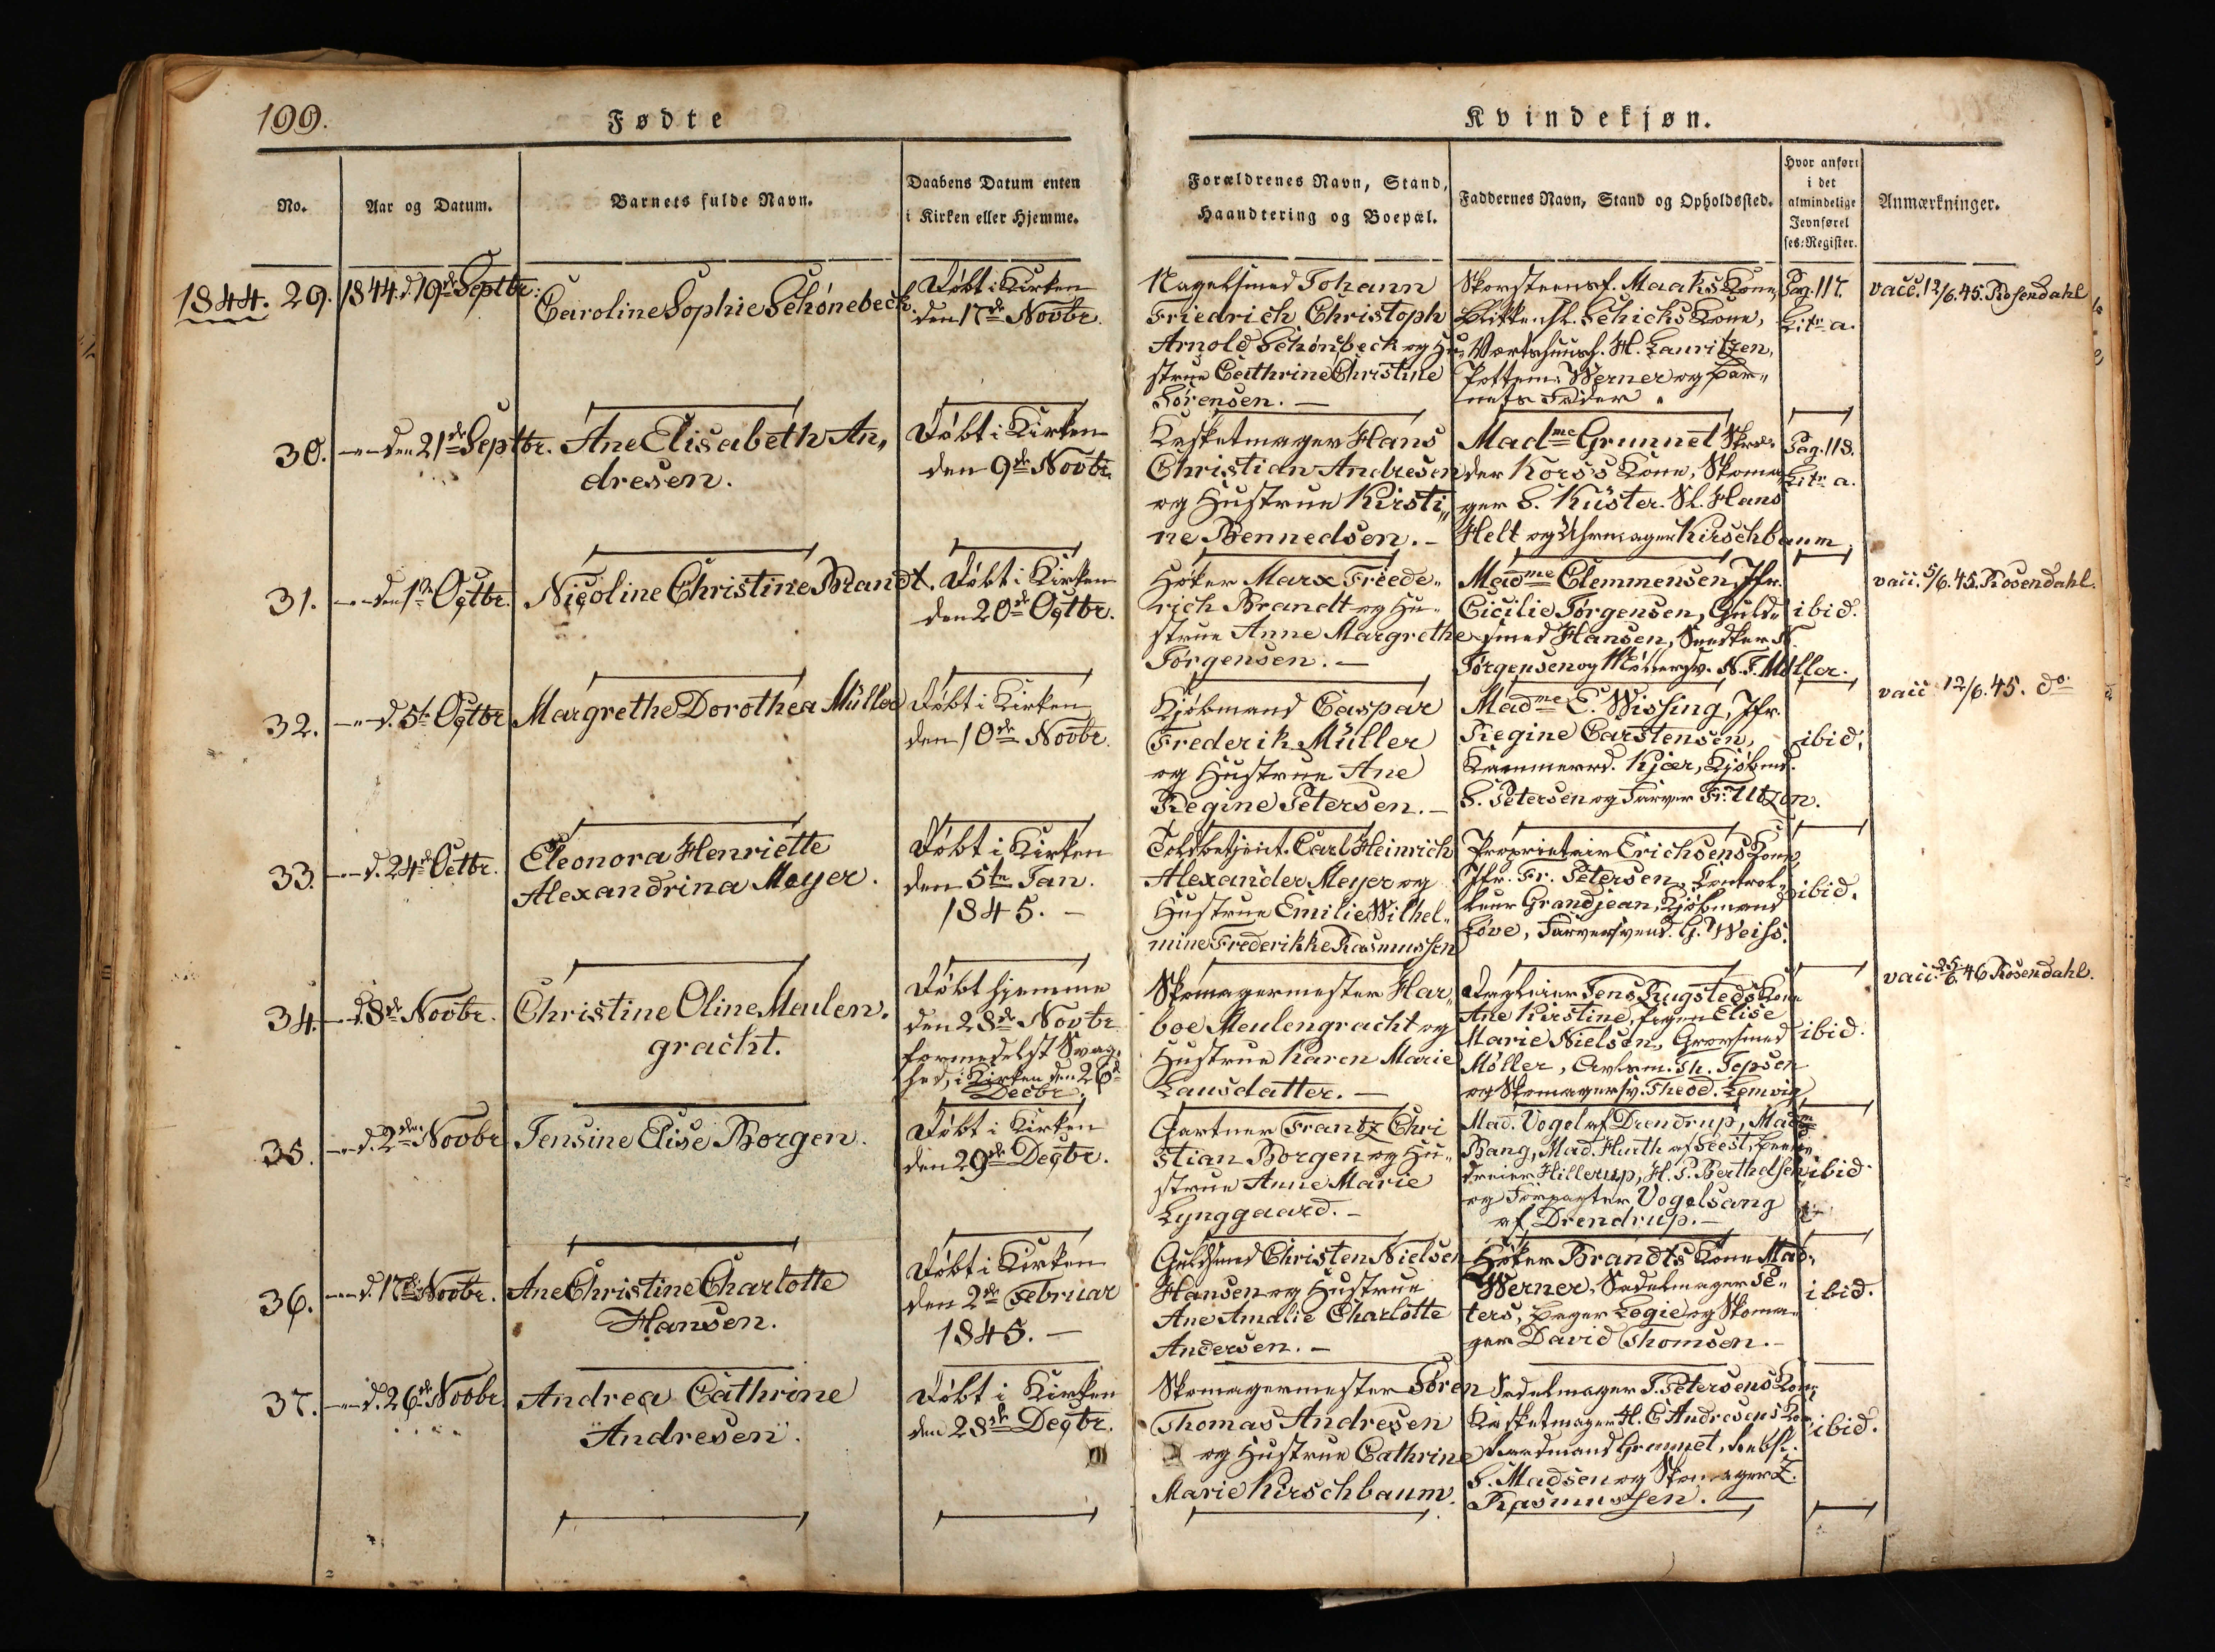 199.
Fødte
Kvindekjøn.
No.
Aar og Datum.
Barnets fulde Navn.
Daabens Datum enten
i Kirken eller Hjemme.
Forældrenes Navn, Stand,
Haandtering og Boepæl.
Faddernes Navn, Stand og Opholdssted.
Hvor anført
i det
almindelige
Jevnførel
ses-Register.
Anmærkninger.
1844. 29.
1844. d. 19de Septbr.
Caroline Sophie Schönebeck.
Døbt i Kirken
den 17de Novbr.
Nagelsmed Johann
Friedrich Christoph
Arnold Schönebeck og Hu„
strue Cathrine Christine
Sörensen. —
Skorsteensf. Maaks Kone,
Schichs Kone,
Værtshuush. H. Lauritzen,
Pottem. Werner og Bar„
nets Fader.
Pag. 117.
Litr a.
vacc. 12/6. 45. Rosendahl
30.
— den 21de Septbr.
Ane Elisabeth An„
dresen.
Døbt i Kirken
den 9de Novbr.
Kasketmager Hans
Christian Andresen
og Hustrue Kirsti„
ne Bennedsen. —
Madme Grunnet Skræ„
der Korss Kone, Skoma„
ger S. Küster. Sl. Hans
Helt og Uhrmager Kirschbaum.
Pag. 118.
Litr a.
31.
— den 1te Octbr.
Nicoline Christine Brandt.
Døbt i Kirken
den 20de Octbr.
Höker Marx Friede„
rich Brandt og Hu„
strue Anne Margrethe
Jörgensen. —
Madme Clemmensen, Jfr.
Cicilie Jörgensen, Guld„
smed Hansen, Snedker N.
Jörgensen og Möllersv. N. J. Möller.
ibid.
vacc. 5/6. 45. Rosendahl.
32.
— d. 5te Octbr
Margrethe Dorothea Müller
Døbt i Kirken
den 10de Novbr.
Kjöbmand Caspar
Frederik Müller
og Hustrue Ane
Regine Petersen. —
Madme C. Wissing, Jfr.
Regine Carstensen,
Kammerrd. Kjær, Kjöbmd.
S. Petersen og Farver Fr. Utzon.
ibid.
vacc 12/6. 45. do
33.
— d. 24de Octbr.
Eleonora Henriette
Alexandrina Meyer.
Døbt i Kirken
den 5te Jan.
1845. —
Toldbetjent. Carl Heinrich
Alexander Meyer og
Hustrue Emilie Wilhel„
mine Frederikke Rasmussen
Proprietair Erichsens Kone,
Jfr. Fr. Petersen, Control„
leur Grandjean, Kjöbmand
Löve, Farversvend. G. Weiss.
ibid.
34.
— d. 8de Novbr.
Christine Oline Meulen„
gracht.
Døbt hjemme
den 28de Novbr.
formedelst Svag„
hed, i Kirken den 26de
Decbr.
Skomagermester Har„
boe Meulengracht og
Hustrue Karen Marie
Lausdatter. —
Dagleier Jens Kone
Ane Kirstine, Elise
Marie Nielsen, Grovsmed
Möller, Avlsm. Th. Jepsen
og Skomagersv. Theod. Lemvig
ibid.
vacc. 25/6. 46 Rosendahl.
35.
— d. 2den Novbr
Jensine Elise Borgen.
Døbt i Kirken
den 29de Decbr.
Gartner Frantz Chri
stian Borgen og Hu„
strue Anne Marie
Lynggaard. —
Mad. Vogel af Drendrup, Madme
Bang, Mad. Hurth af Seest,
dreier Hillerup, H. P. Berthelsen
og Forpagter Vogelsang
af Drendrup. —
ibid
36.
— d. 17de Novbr.
Ane Christine Charlotte
Hansen.
Døbt i Kirken
den 2de Februar
1845. —
Guldsmed Christen Nielsen
Hansen og Hustrue
Ane Amalie Charlotte
Andersen. —
Höker Brandts Kone Mad.
Werner, Sadelmager Pe„
ters, Bager Logie og Skoma„
ger David Thomsen. —
ibid.
37.
— d. 26de Novbr.
Andrea Cathrine
Andresen.
Døbt i Kirken
den 28de Decbr.
Skomagermester Sören
Thomas Andresen
og Hustrue Cathrine
Marie Kirschbaum.
Sadelmager J. Petersens Kone,
Kasketmager H. C. Andresens Kone,
Grunnet,
S. Madsen og Skomager Z.
Rasmussen. —
ibid.